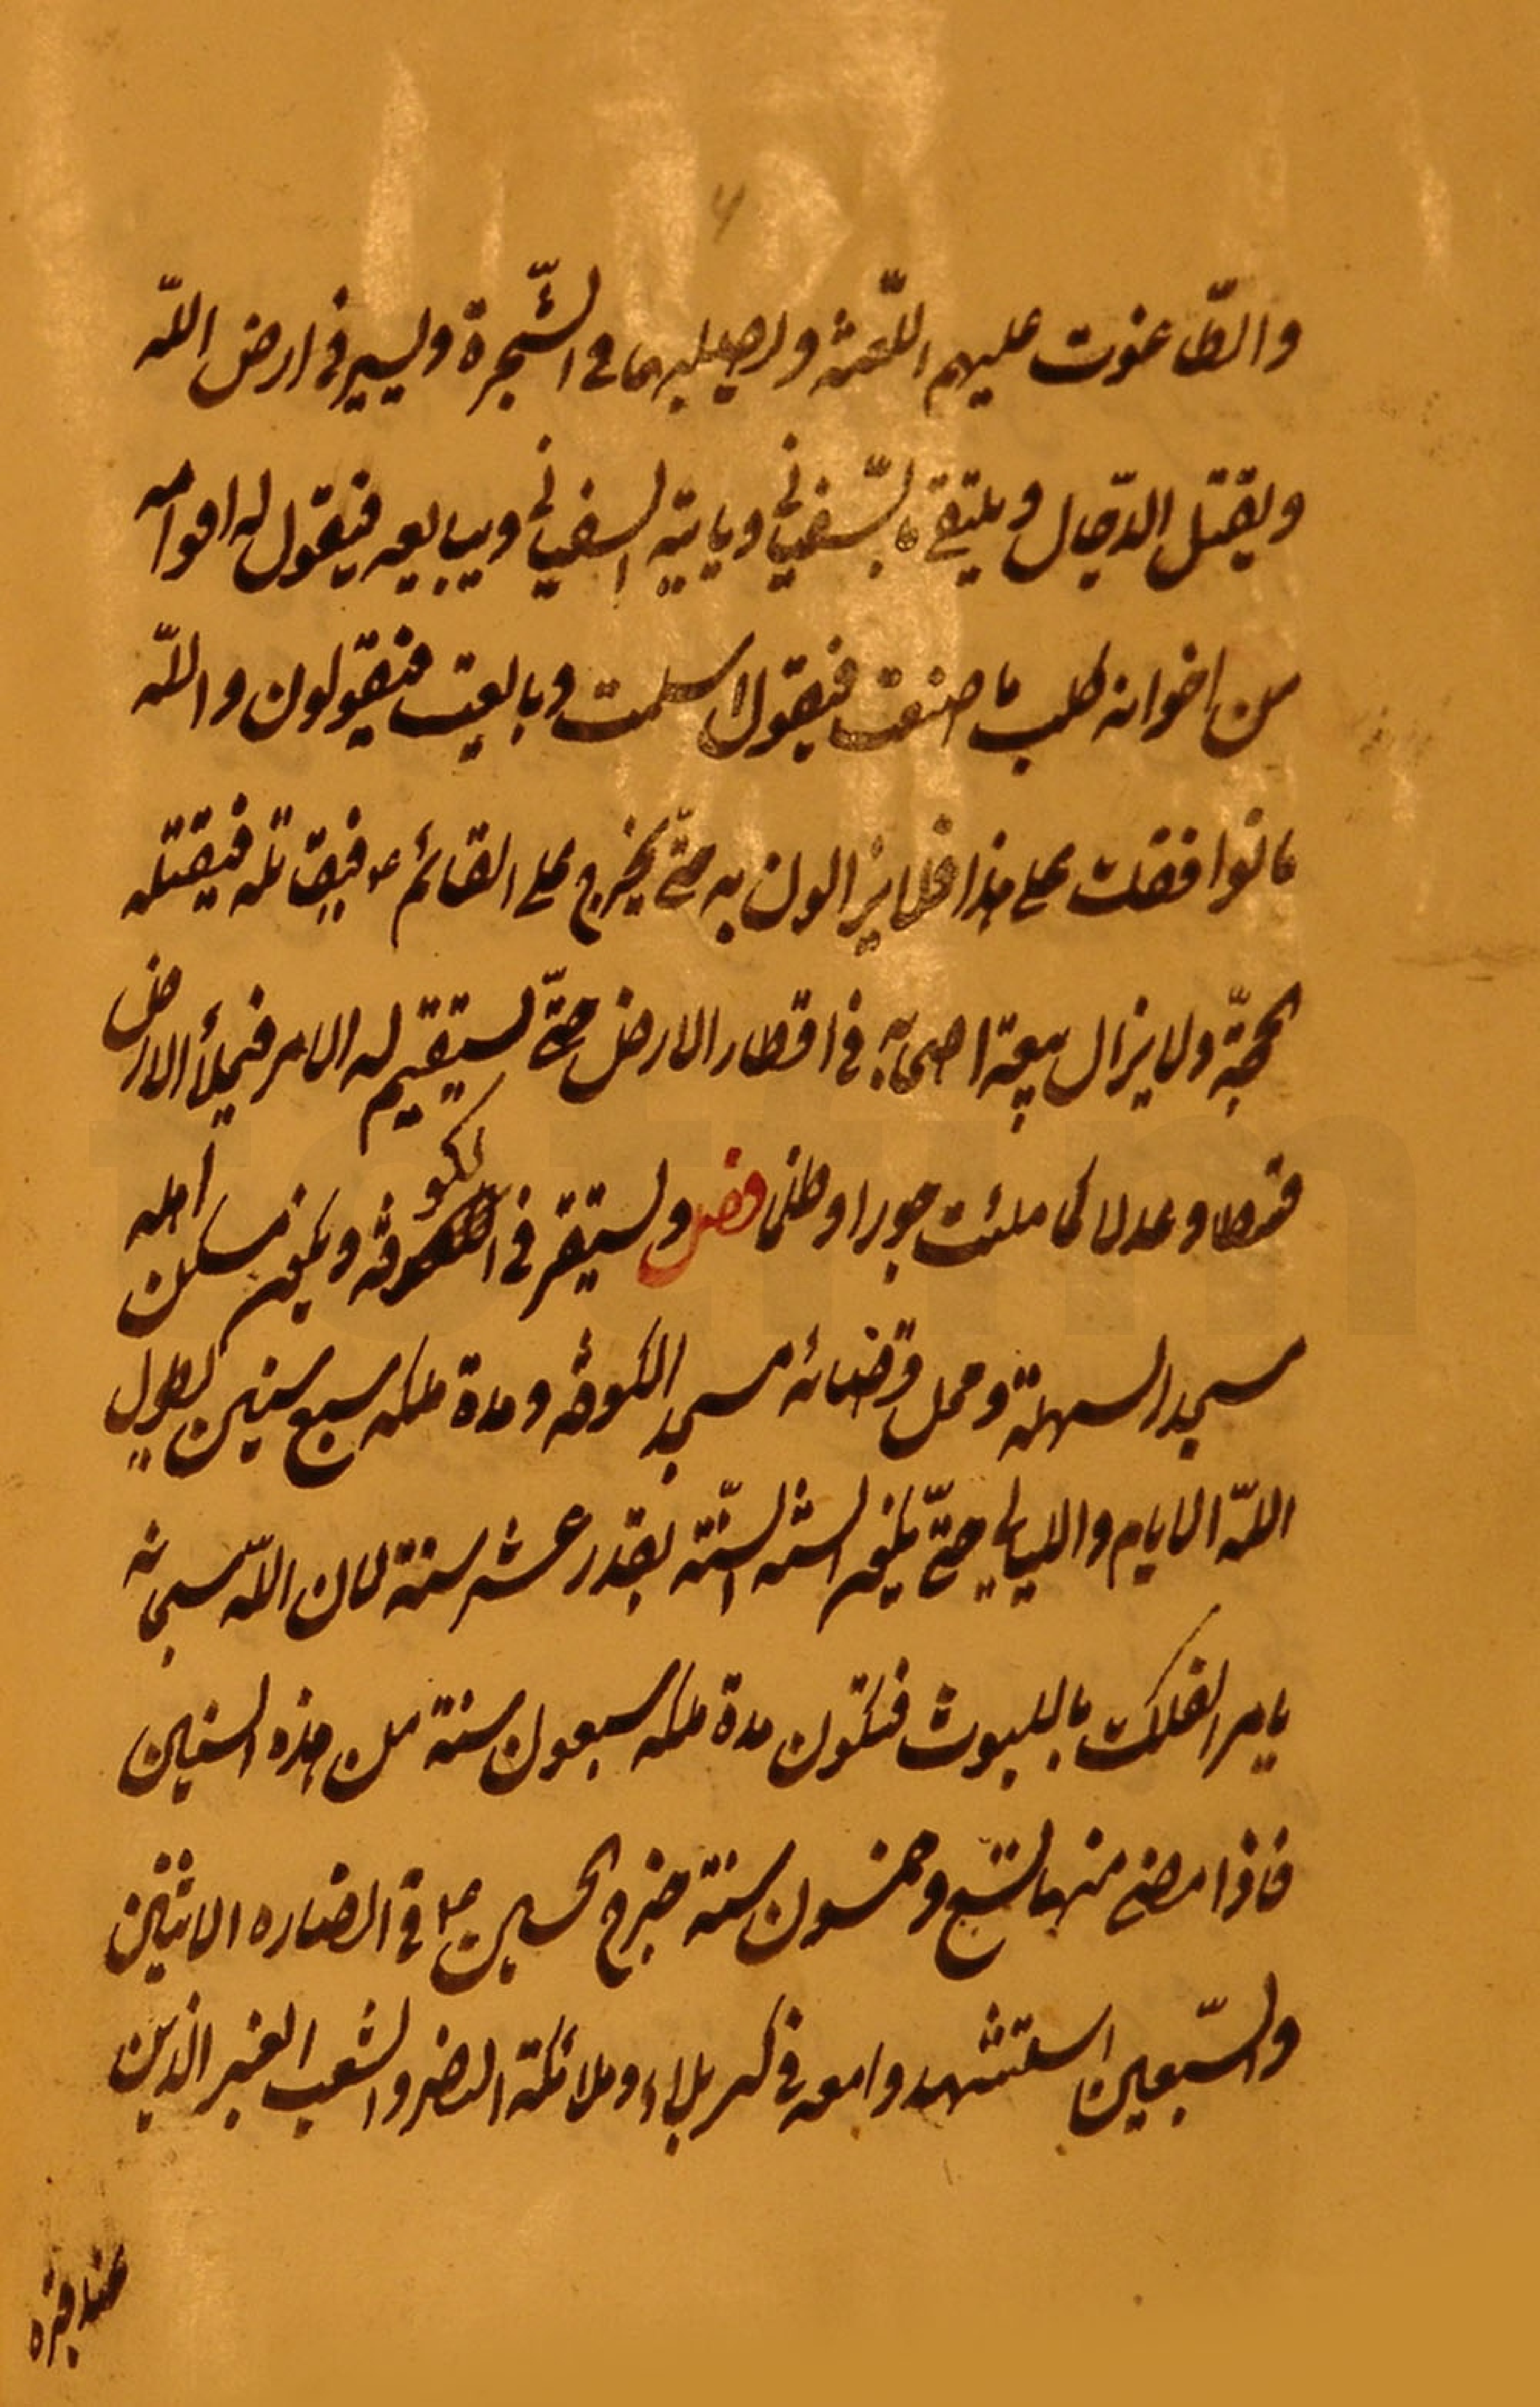 والطّاغوت عليهم اللّعنة ويصلبهما في الشّجرة ويسير في ارض اللّه
ويقتل الدّجال ويلتقي بالسّفياني وياتيه السفياني ويبايعه فيقول له اقوامه
من اخوانه كلب ما صنعت فيقول اسلمت وبايعت فيقولون واللّه
ما نوافقك على هذا فلا يزالون به حتّى يخرج على القائم ع فيقاتله فيقتله
الحجّة ولا يزال يبعث اصحابه في اقطار الارض حتّى يستقيم له الامر فيملأ الارض
قسطا وعدلا كما ملئت جورا وظلما فصل ويستقر في الكوفة ويكون مسكن اهله
مسجد السهلة ومحل قضائه مسجد الكوفة ومدة ملكه سبع سنين يطول
اللّه الايام والليالي حتّى تكون السنة بقدر عشر سنة لان اللّه سبحانه
يامر الفلك باللبوث فتكون مدة ملكه سبعون سنة من هذه السنين
فاذا مضى منها تسع وخمسون سنة خرج الحسين ع في انصاره الاثنين
والسّبعين استشهدوا معه في كربلاء وملائكة النصر والشعث الغبر الذين
عند قبره